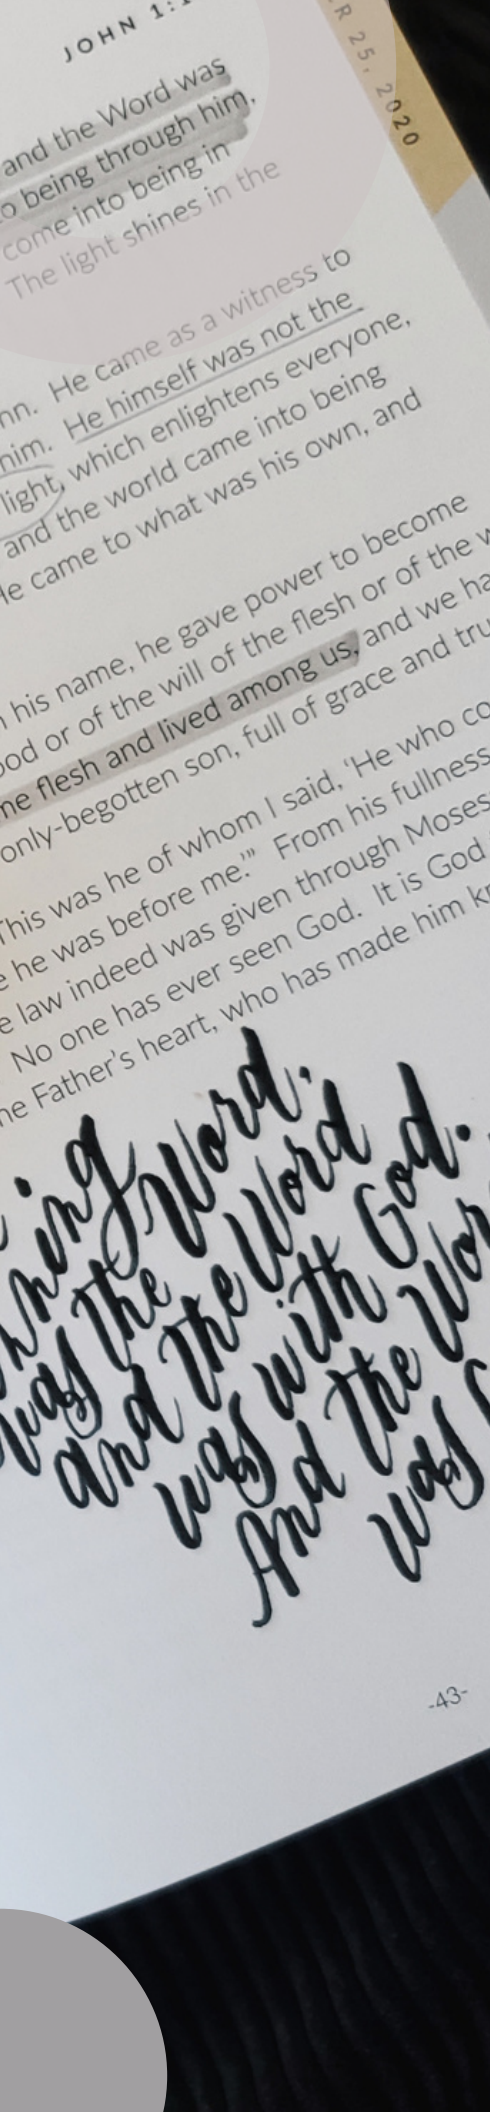 JOHN 1:1
R 25, 2020
and the Word was
o being through him,
come into being in
The light shines in the
hn. He came as a witness to
him. He himself was not the
light, which enlightens everyone,
and the world came into being
He came to what was his own, and
n his name, he gave power to become
ood or of the will of the flesh or of the w
me flesh and lived among us, and we ha
only-begotten son, full of grace and tru
This was he of whom I said, 'He who co
e he was before me.'" From his fullness
e law indeed was given through Moses;
No one has ever seen God. It is God
he Father's heart, who has made him kn
nning
was the Word.
and the Word
was with God.
And the Wor
was G
-43-